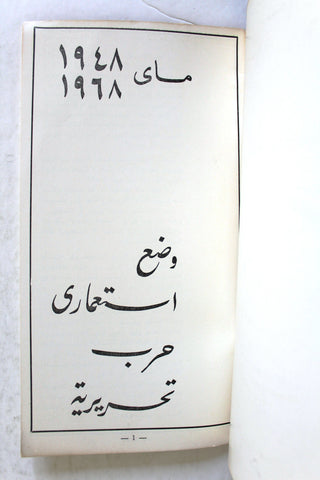 ماي ١٩٤٨
١٩٦٨
وضع
استعماري
حرب
تحريرية
— ١ —